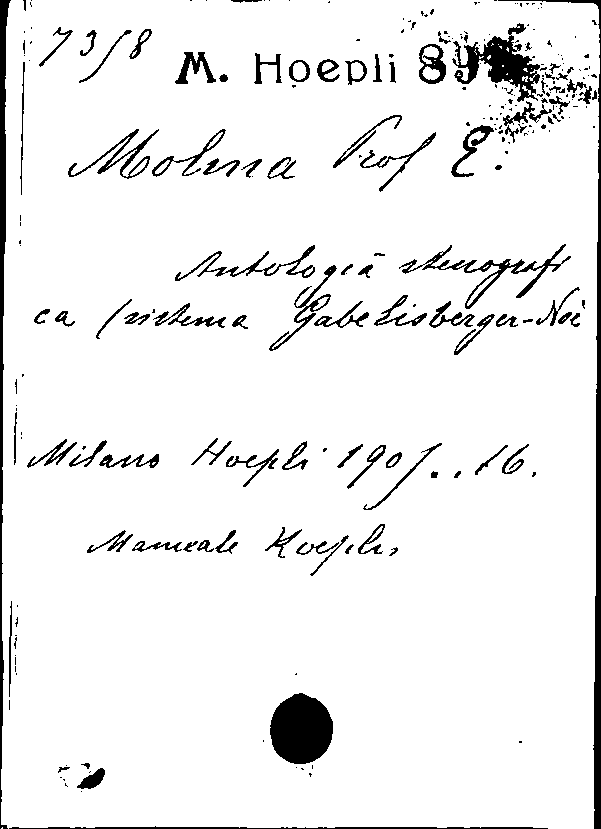 7358
M. Hoepli
Molina Prof E.
Antologia stenografi
ca (sistema Gabelisberger-Noë
Milano Hoepli 1905..16.
Manuale Hoepli